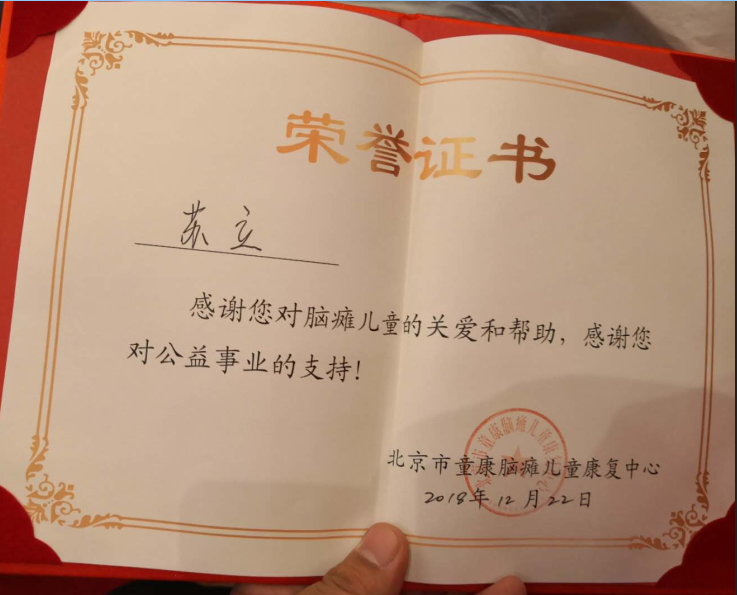 荣誉证书
苏立
感谢您对脑瘫儿童的关爱和帮助，感谢您
对公益事业的支持！
北京市童康脑瘫儿童康复中心
2018年12月22日